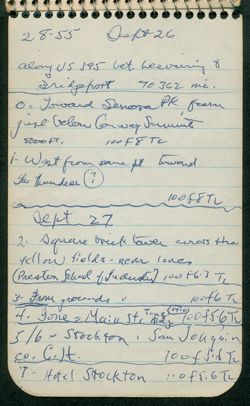 28-55 Sept 26
along US 395 bet. Leevining &
Bridgeport 70362 mi.
0 = Toward Sonora Pk, from
just below Conway Summit
8000 ft. 100 F8 TL
1- West from same pt toward
The Thunderer (?)
100 f 8 TL
Sept 27
2. Square brick tower across the
yellow fields - near Ione
(Preston School of Industry) 100 f 6.3 TL
3- From grounds " 100 f 6 TL
4. Ione = Main St. 100 f 5.6 TL
5/6 ~ Stockton, San Joaquin
co. C.H. 100 f 5.6 TL
7- Hotel Stockton 100 f 5.6 TL